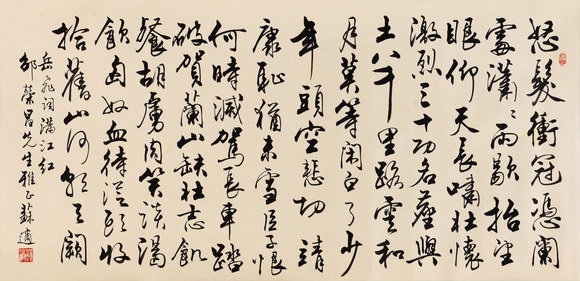 怒髮衝冠憑闌
處瀟〻雨歇抬望
眼仰天長嘯壯懷
激烈三十功名塵與
土八千里路雲和
月莫等閑白了少
年頭空悲切靖
康恥猶未雪臣子恨
何時滅駕長車踏
破賀蘭山缺壯志飢
餐胡虜肉笑談渴
飲匈奴血待從頭收
拾舊山河朝天闕
岳飛詞滿江紅
榮昌先生雅正蘇適